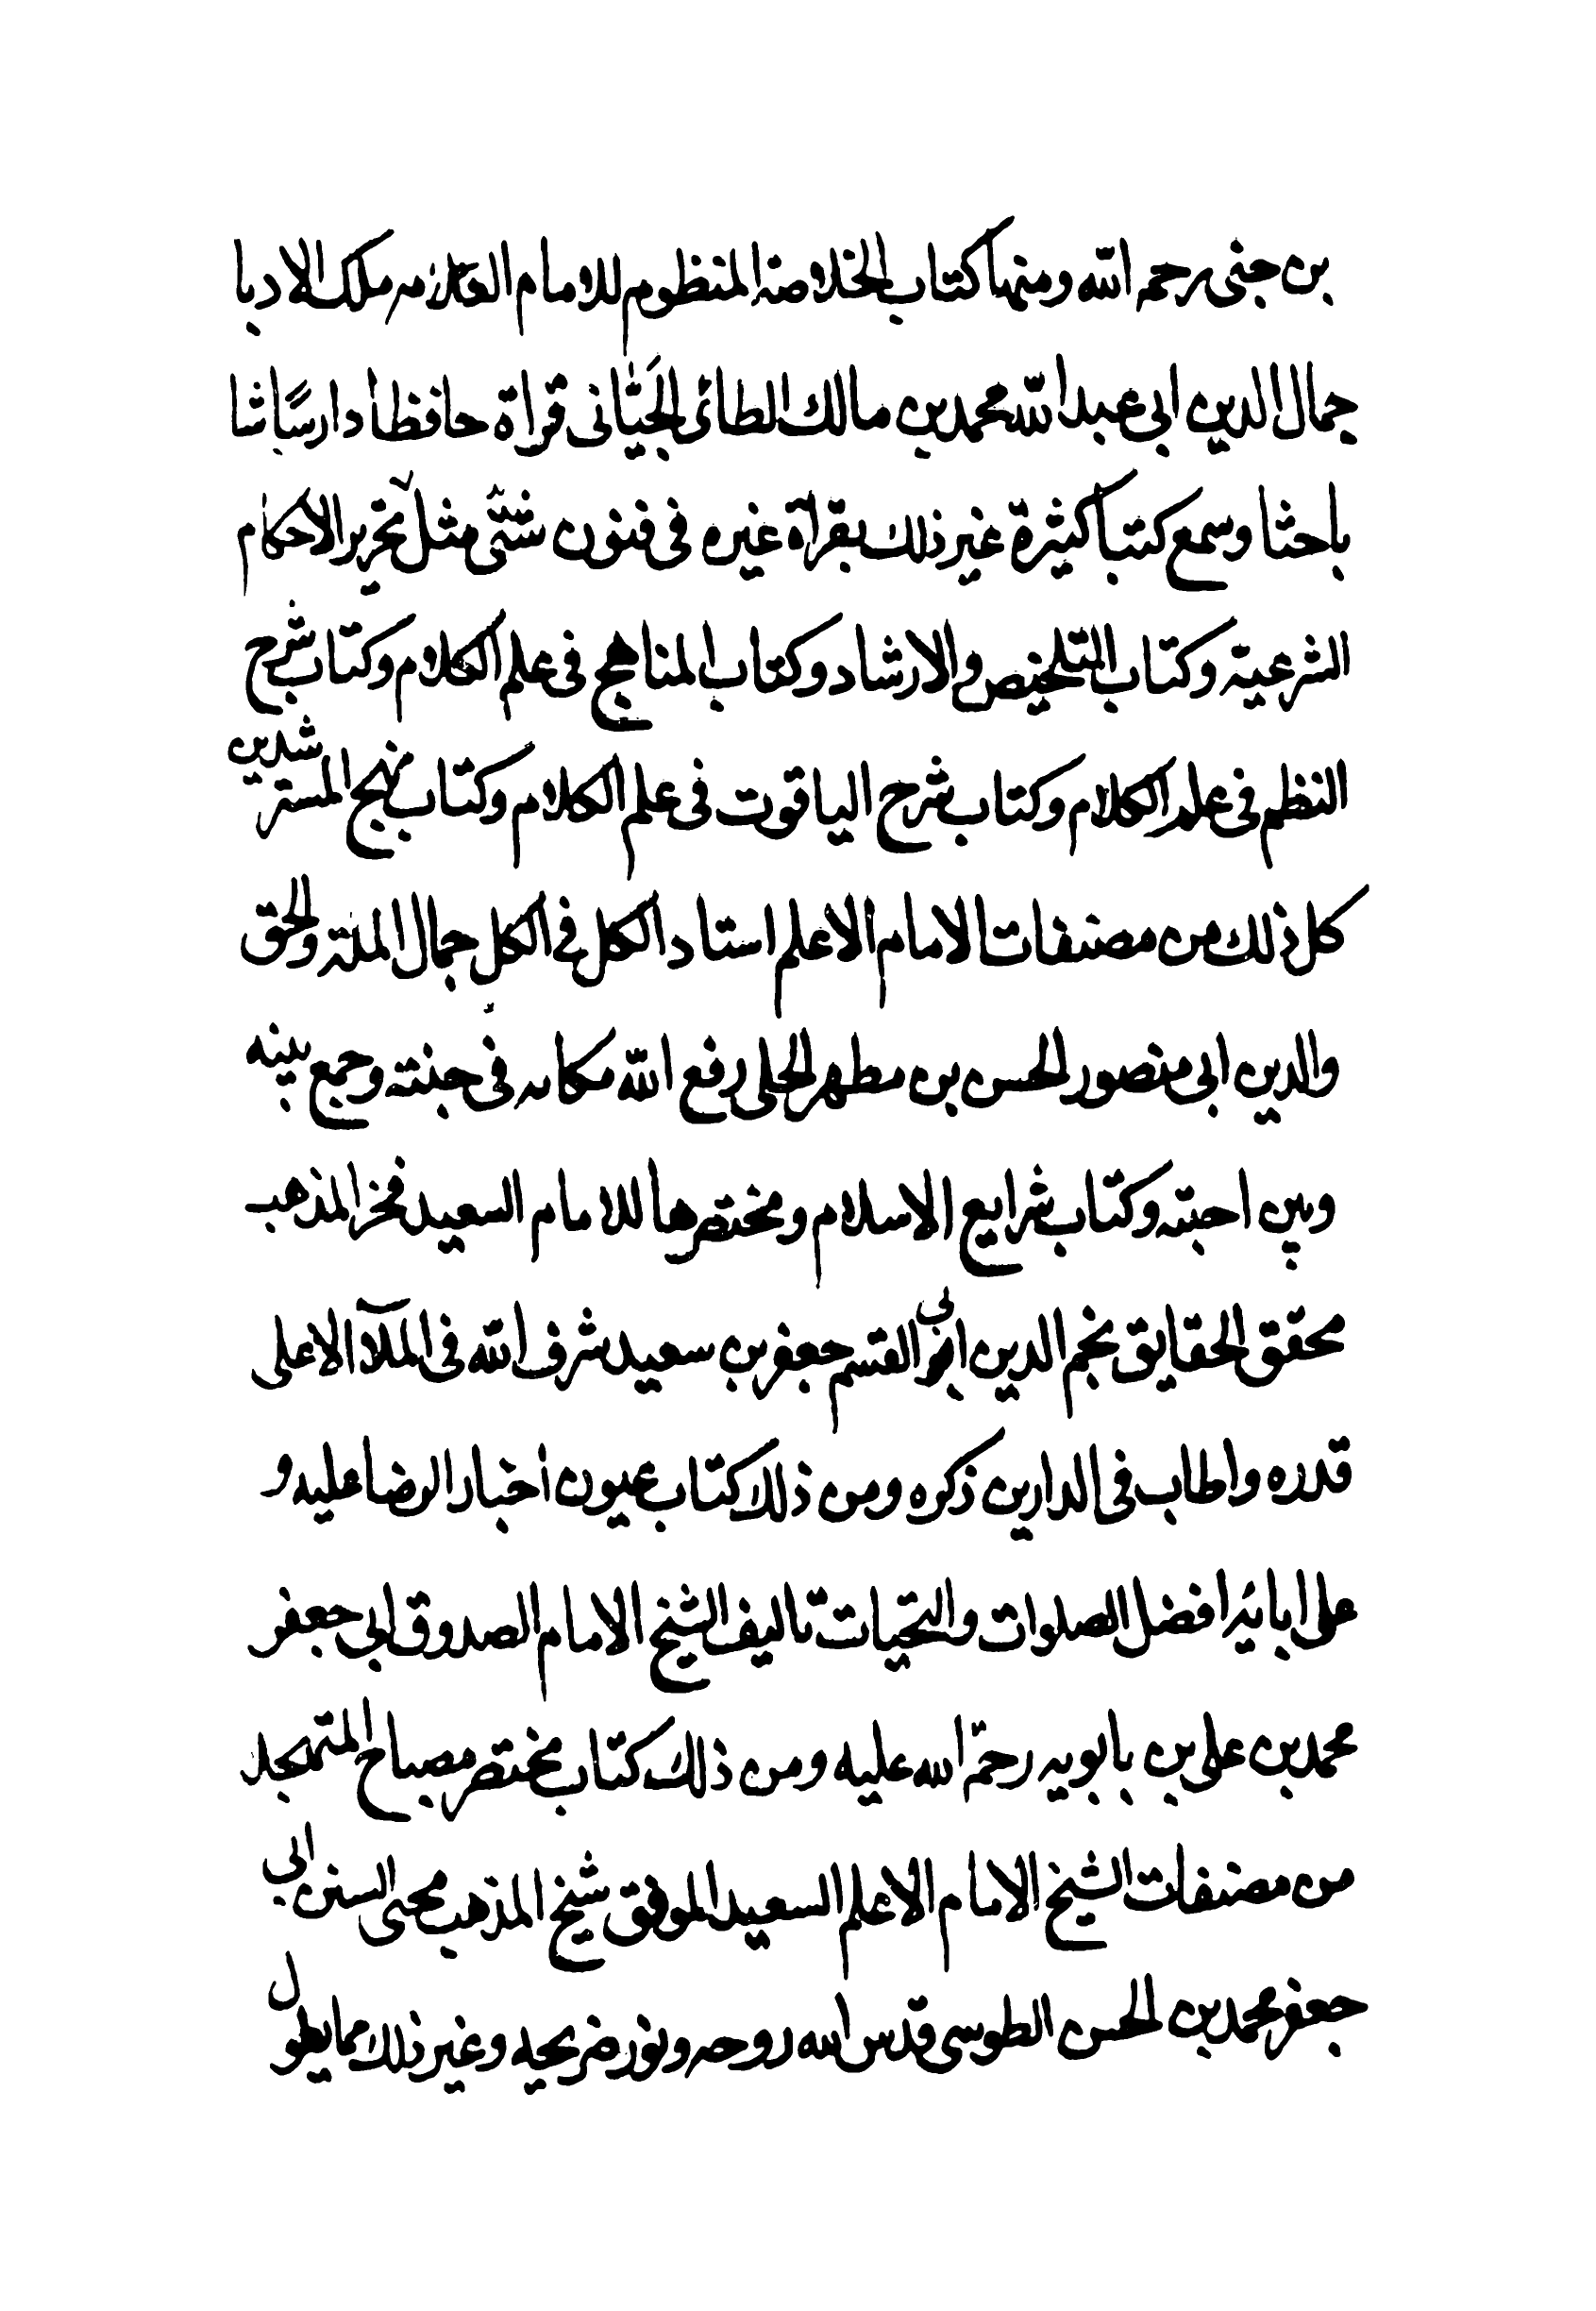 بن جنى رحمه الله ومنها كتاب الخلاصة المنظوم للامام العلامه ملك الادبا
جمال الدين ابى عبد الله محمد بن مالك الطائى الجَيّانى قراة حافظا دارسًا
باحثا وسمع كتبا كثيرة غير ذلك بقرآة غيره فى فنون شتى مثل تحرير الاحكام
الشرعية وكتاب التلخيص والارشاد وكتاب المناهج فى علم الكلام وكتاب شرح
النظم فى علم الكلام وكتاب شرح الياقوت فى علم الكلام وكتاب نهج المسترشدين
كل ذلك من مصنفات الامام الاعلم استاد الكل فى الكل جمال الملة والحق
والدين ابى منصور الحسن بن مطهر الحلى رفع الله مكانه فى جنته وجمع بينه
وبين احبته وكتاب شرايع الاسلام ومختصرها للامام السعيد فخر المذهب
محقق الحقايق نجم الدين ابى القسم جعفر بن سعيد شرف الله فى الملآ الاعلى
قدره واطاب فى الدارين ذكره ومن ذلك كتاب عيون اخبار الرضا عليه و
على ابائه افضل الصلوات والتحيات تاليف الشيخ الامام الصدوق ابى جعفر
محمد بن على بن بابويه رحمة الله عليه ومن ذلك كتاب مختصر مصباح المتهجد
من مصنفات الشيخ الامام الاعلم السعيد الموفق شيخ المذهب محيى السنن ابى
جعفر محمد بن الحسن الطوسى قدس الله روحه ونور ضريحه وغير ذلك مما يطول